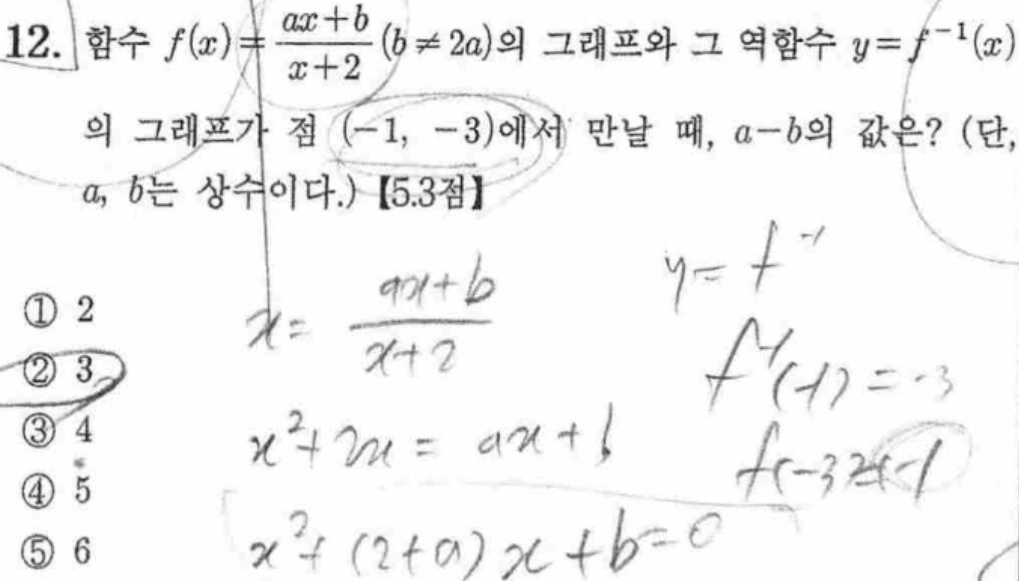 12. 함수 f(x)=\frac{ax+b}{x+2}(b≠2a)의 그래프와 그 역함수 y=f^{-1}(x)
의 그래프가 점 (-1, -3)에서 만날 때, a-b의 값은? (단,
a, b는 상수이다.) 【5.3점】
① 2
② 3
③ 4
④ 5
⑤ 6
x= \frac{ax+b}{x+2}
x^2+2x = ax+b
x^2+(2+a)x+b=0
y= f^{-1}
f^{-1}(-1) = -3